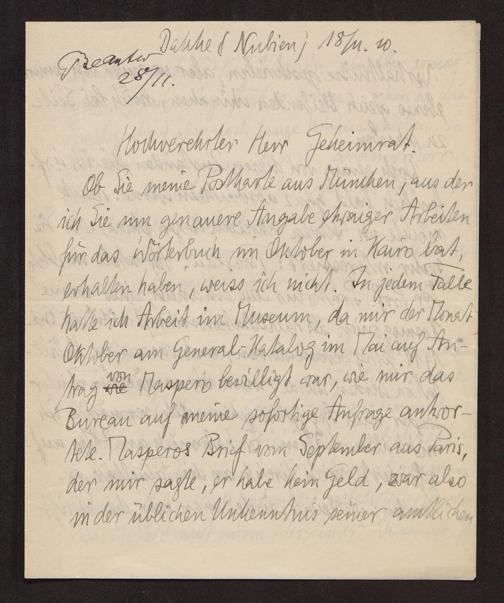 Dakke (Nubien) 18/11. 10.
Beantw
28/11.
Hochverehrter Herr Geheimrat.
Ob Sie meine Postkarte aus München, aus der
ich Sie um genauere Angabe etwaiger Arbeiten
für das Wörterbuch im Oktober in Kairo bat,
erhalten haben, weiss ich nicht. In jedem Falle
hatte ich Arbeit im Museum, da mir der Monat
Oktober am General-Katalog im Mai auf An-
trag von Maspero bewilligt war, wie mir das
Bureau auf meine sofortige Anfrage antwor-
tete. Masperos Brief vom September aus Paris,
der mir sagte, er habe kein Geld, war also
in der üblichen Unkenntnis seiner amtlichen